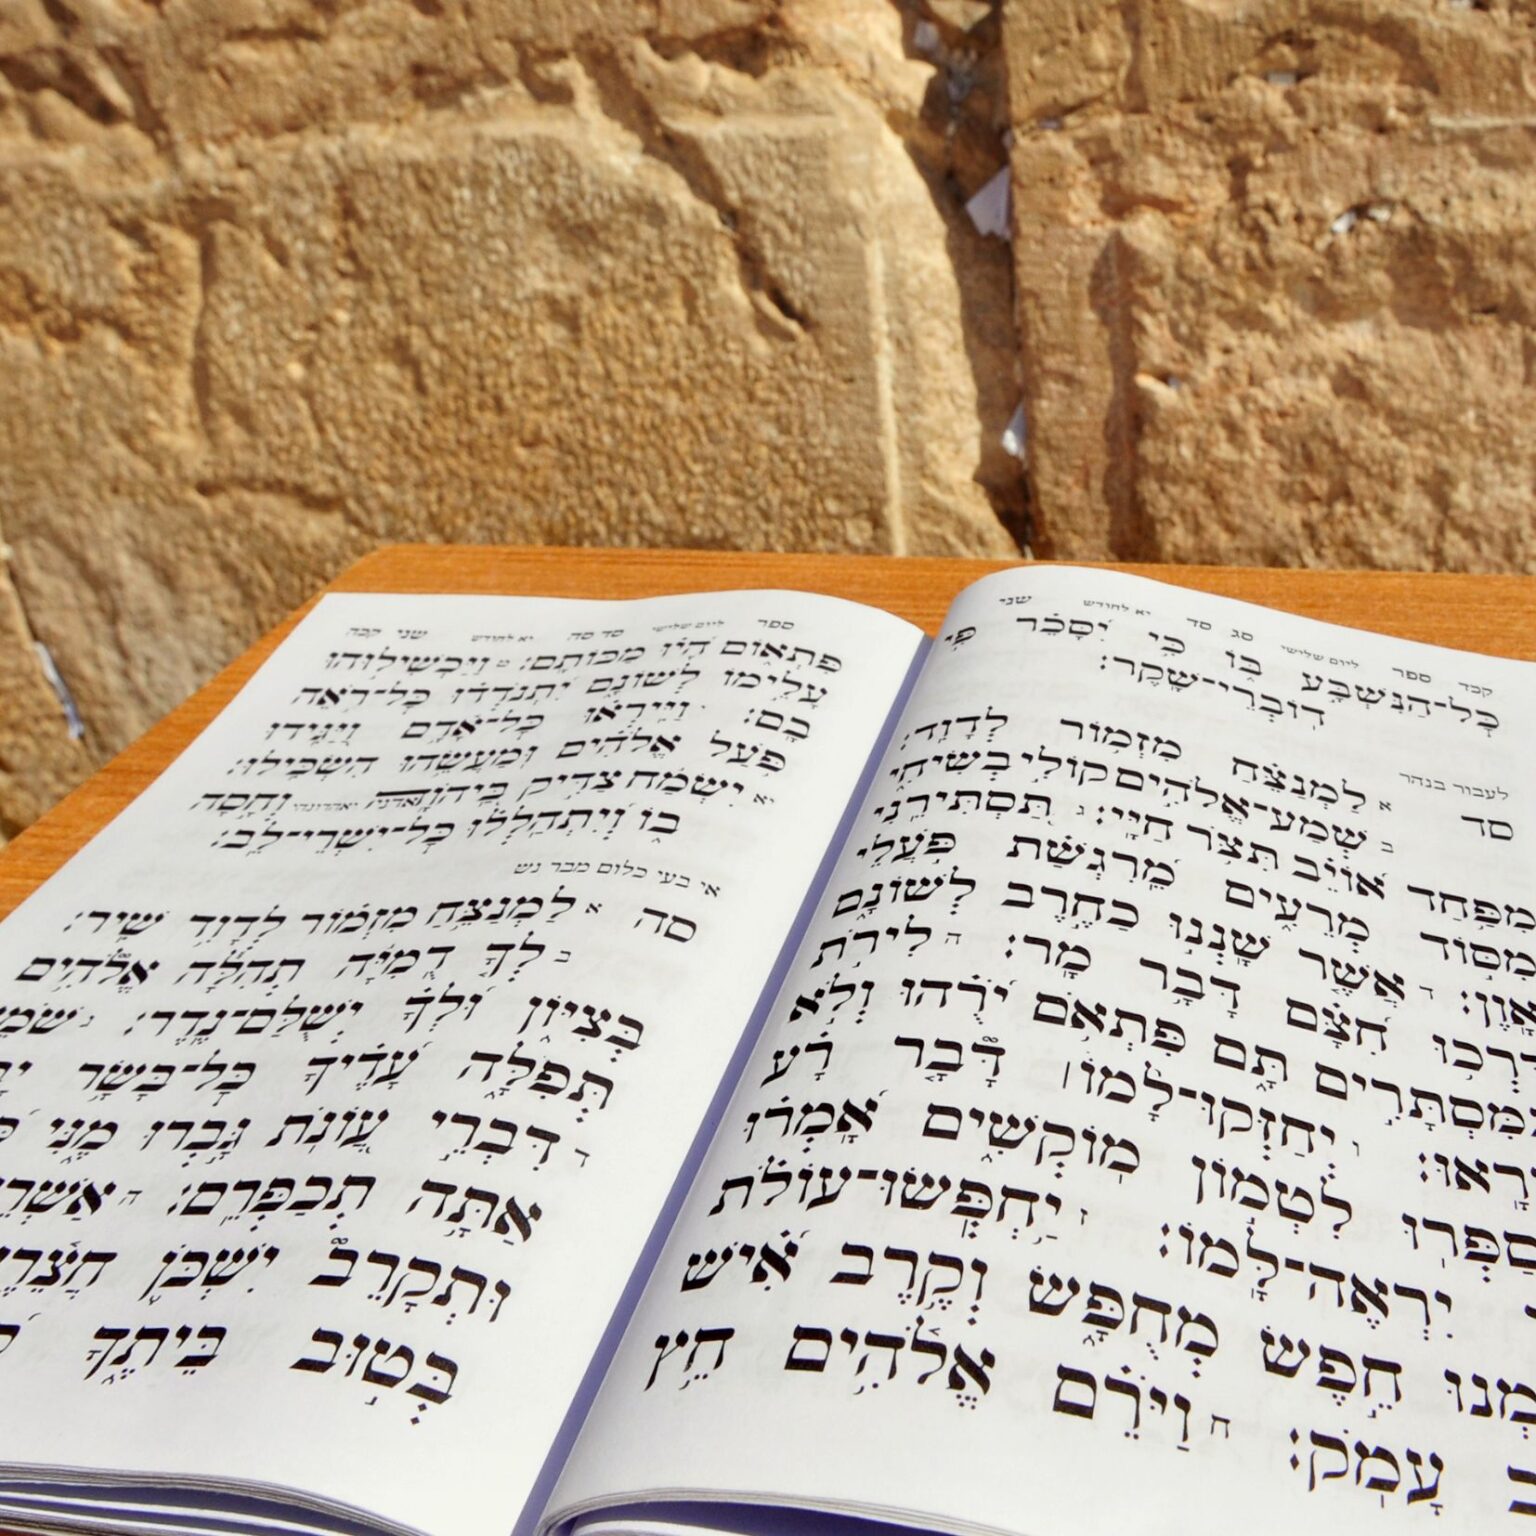 קכד ספר ליום שלישי סג סד יא לחודש שני
כָּל־הַנִּשְׁבָּע בּוֹ כִּי יִסָּכֵר פִּי
דוֹבְרֵי־שָׁקֶר:
לעבור בנהר
סד א לַמְנַצֵּחַ מִזְמוֹר לְדָוִד:
ב שְׁמַע־אֱלֹהִים קוֹלִי בְשִׂיחִי
מִפַּחַד אוֹיֵב תִּצֹּר חַיָּי: ג תַּסְתִּירֵנִי
מִסּוֹד מְרֵעִים מֵרִגְשַׁת פֹּעֲלֵי
אָוֶן: ד אֲשֶׁר שָׁנְנוּ כַחֶרֶב לְשׁוֹנָם
דָּרְכוּ חִצָּם דָּבָר מָר: ה לִירֹת
בַּמִּסְתָּרִים תָּם פִּתְאֹם יֹרֻהוּ וְלֹא
יִירָאוּ: ו יְחַזְּקוּ־לָמוֹ׀ דָּבָר רָע
יְסַפְּרוּ לִטְמוֹן מוֹקְשִׁים אָמְרוּ
יִרְאֶה־לָּמוֹ: ז יַחְפְּשׂוּ־עוֹלֹת
תַּמְנוּ חֵפֶשׂ מְחֻפָּשׂ וְקֶרֶב אִישׁ
עָמֹק: ח וַיֹּרֵם אֱלֹהִים חֵץ
ספר ליום שלישי סד סה יא לחודש שני קכה
פִּתְאוֹם הָיוּ מַכּוֹתָם: ט וַיַּכְשִׁילוּהוּ
עָלֵימוֹ לְשׁוֹנָם יִתְנֹדְדוּ כָּל־רֹאֵה
בָם: י וַיִּירְאוּ כָּל־אָדָם וַיַּגִּידוּ
פֹּעַל אֱלֹהִים וּמַעֲשֵׂהוּ הִשְׂכִּילוּ:
יא יִשְׂמַח צַדִּיק בַּיהוָה וְחָסָה
בוֹ וְיִתְהַלְלוּ כָּל־יִשְׁרֵי־לֵב:
אי בעי כלום מבר נש
סה א לַמְנַצֵּחַ מִזְמוֹר לְדָוִד שִׁיר:
ב לְךָ דֻמִיָּה תְהִלָּה אֱלֹהִים
בְּצִיּוֹן וּלְךָ יְשֻׁלַּם־נֶדֶר: ג שֹׁמֵעַ
תְּפִלָּה עָדֶיךָ כָּל־בָּשָׂר
ד דִּבְרֵי עֲוֹנֹת גָּבְרוּ מֶנִּי
אַתָּה תְכַפְּרֵם: ה אַשְׁרֵי
וּתְקָרֵב יִשְׁכֹּן חֲצֵרֶיךָ
בְּטוּב בֵּיתֶךָ